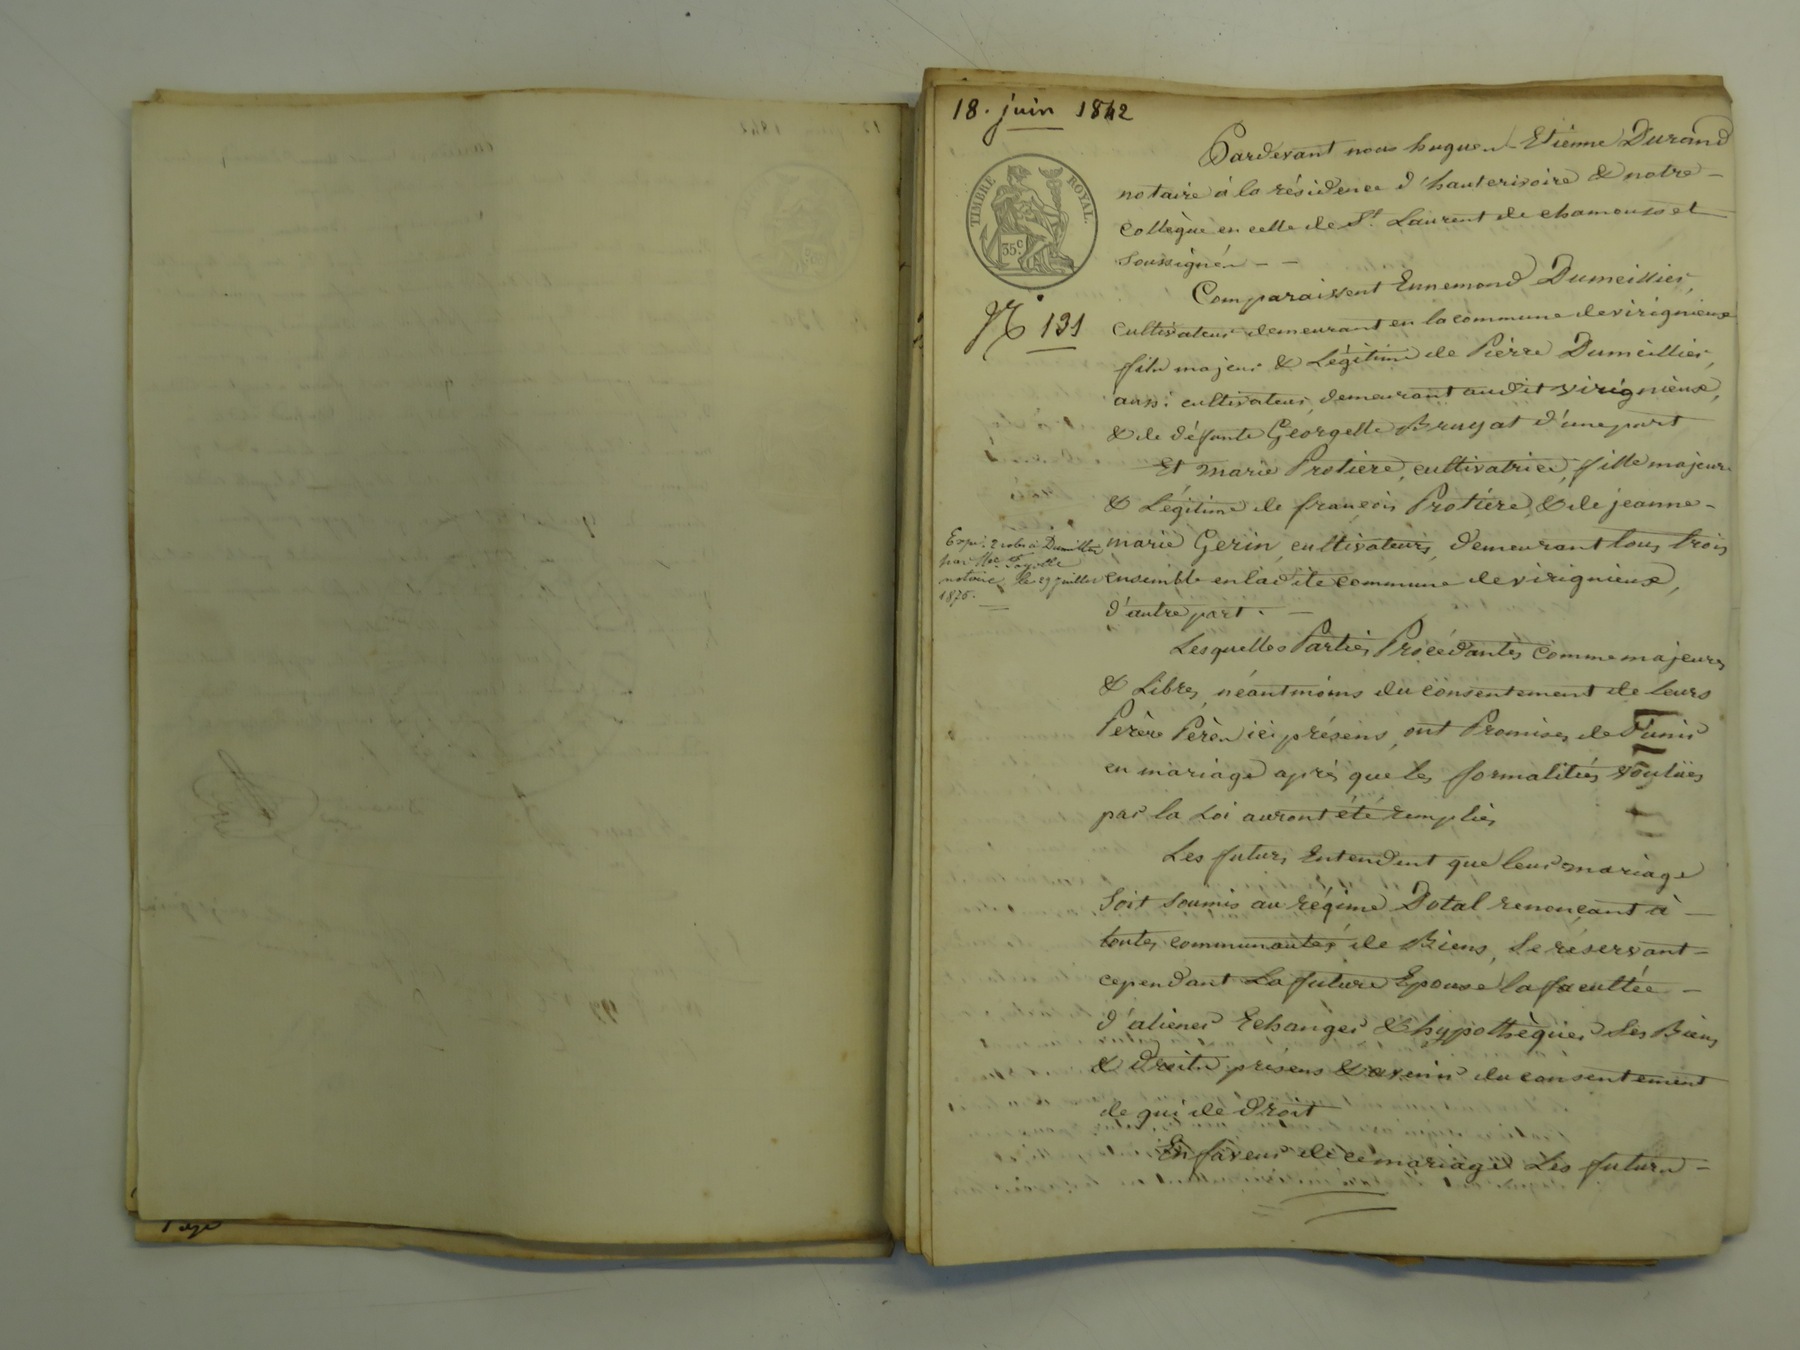 18. juin 1842
TIMBRE ROYAL.
35c
No 131
Pardevant nous hugues Etienne Durand
notaire à la résidence d'hauterivoire & notre
collègue en celle de St. Laurent de chamousset
soussignés
Comparaissent Ennemond Dumeillier,
cultivateur demeurant en la commune de virignieux
fils majeur & Légitime de Pierre Dumeillier,
aussi cultivateur, demeurant audit virignieux,
& de défunte Georgette Bruyat d'une part
Et marie Protière, cultivatrice, fille majeure
& Légitime de françois Protière, & de jeanne-
marie Gerin, cultivateurs, demeurant tous trois
ensemble en ladite commune de virignieux,
d'autre part.
Expé. 2 roles à Dumillier
par Me
notaire, le 29 juillet
1876.
Lesquelles Parties Procédantes comme majeures
& Libres, néantmoins du consentement de leurs
Père ici présens, ont Promises de s'unir
en mariage après que les formalitées voulües
par la Loi auront été remplies
Les futurs Entendent que leur mariage
soit soumis au régime Dotal renonçant à
toutes communautés de Biens, se réservant
cependant La future Epouse la facultée
d'aliéner Echanger & hypothèquer ses Biens
& droits présens & avenir du consentement
de qui de droit
En faveur de ce mariage Les futurs
Page